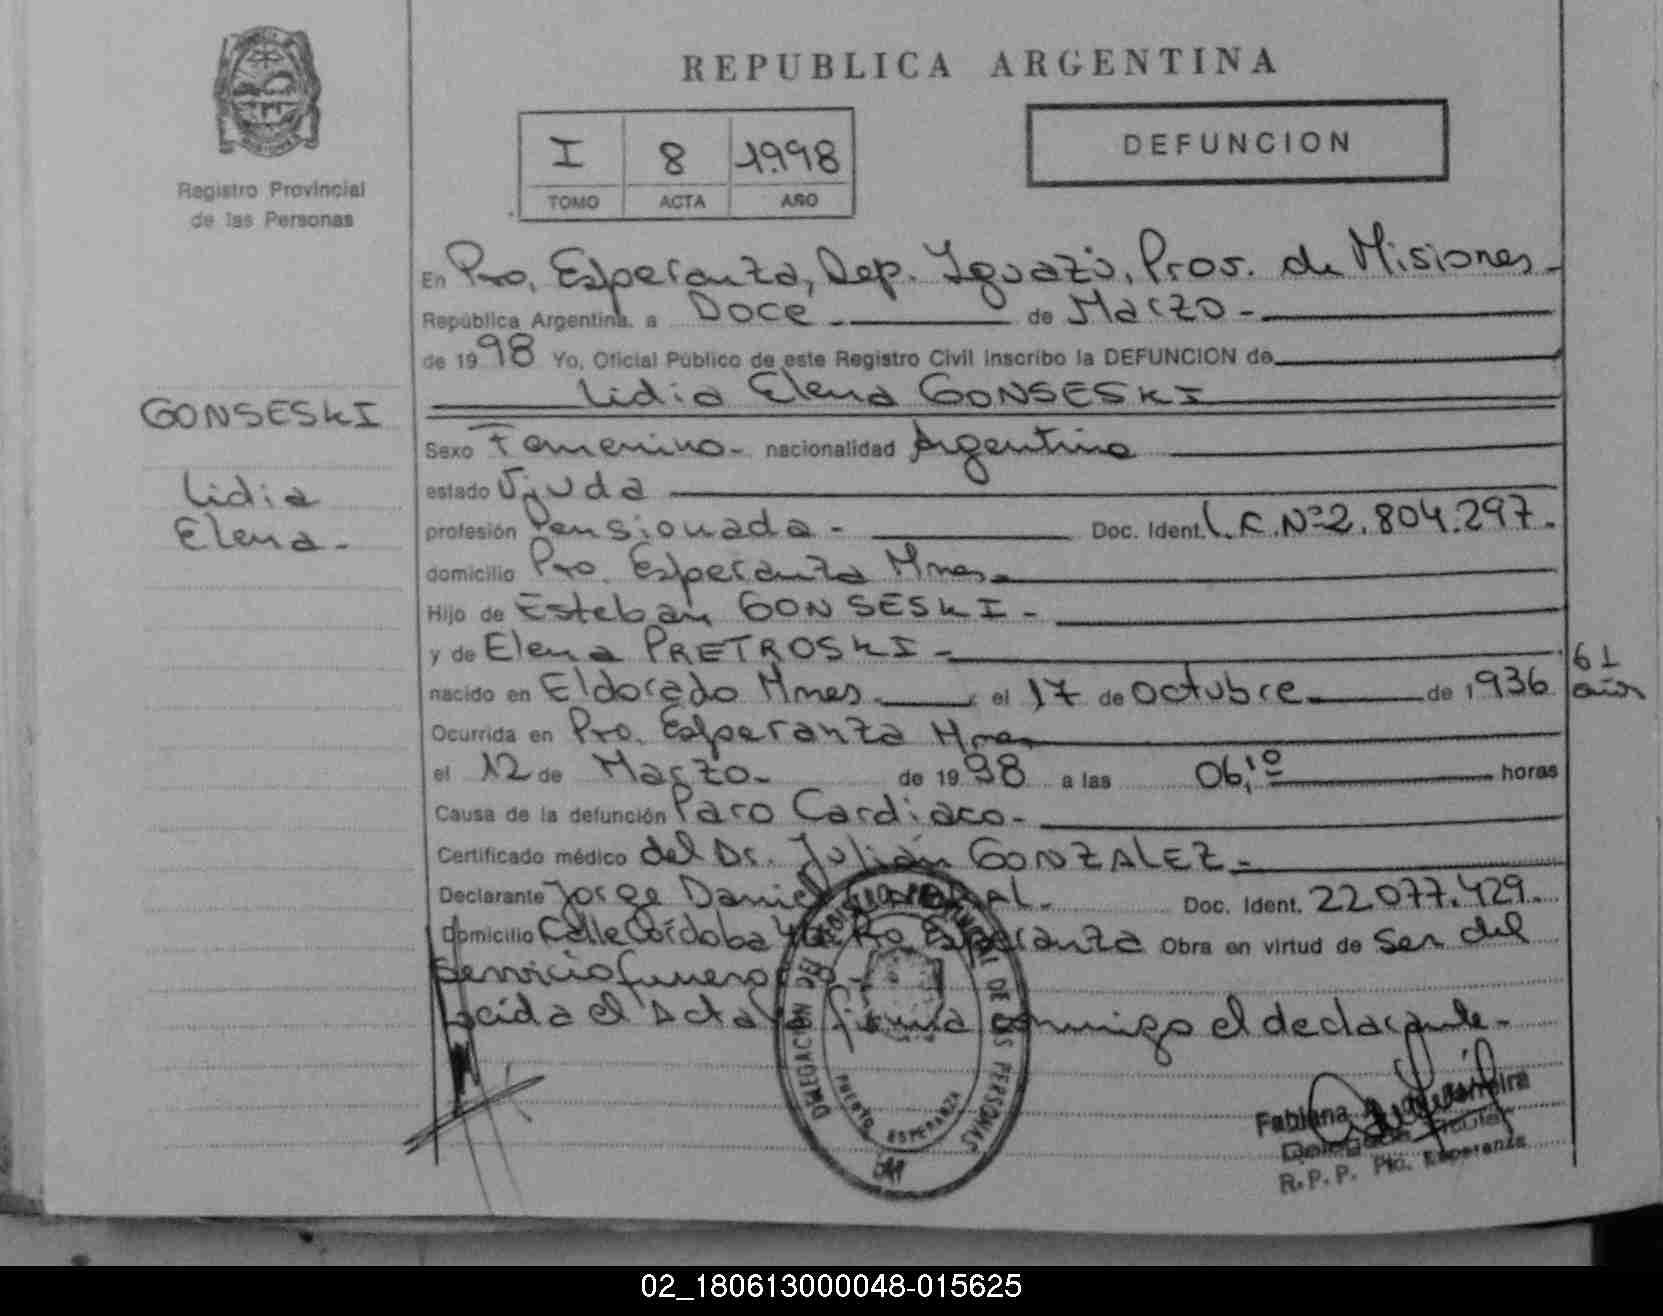 REPUBLICA ARGENTINA
Registro Provincial
de las Personas
I 8 1.998
TOMO ACTA AÑO
DEFUNCION
En Pto. Esperanza, Dep. Iguazú, Prov. de Misiones.
República Argentina, a Doce - de Marzo -
de 1998 Yo, Oficial Público de este Registro Civil inscribo la DEFUNCION de
Lidia Elena GONSESKI
GONSESKI
Lidia
Elena.-
Sexo Femenino- nacionalidad Argentina
estado Viuda
profesión Pensionada - Doc. Ident. L.C.Nº2.804.297.
domicilio Pto. Esperanza Mnes.
Hijo de Esteban GONSESKI -
y de Elena PRETROSKI -
nacido en Eldorado Mnes. el 17 de octubre de 1936
61
años
Ocurrida en Pto. Esperanza Mnes
el 12 de Marzo.- de 1998 a las 06,10 horas
Causa de la defunción Paro Cardiaco.-
Certificado médico del Dr. Julián GONZALEZ.-
Declarante Jorge Daniel Doc. Ident. 22.077.429.
Domicilio Calle Córdoba Pto. Esperanza Obra en virtud de ser del
servicio funerario
Leída el Acta firma conmigo el declarante.-
DELEGACION DEL REGISTRO PROVINCIAL DE LAS PERSONAS
PUERTO ESPERANZA
Fabiana Ferreira
Delegada Titular
R.P.P. Pto. Esperanza
02_180613000048-015625